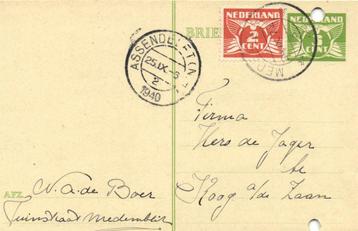 BRIE
NEDERLAND
2
CENT
NEDERLAND
ASSENDELFT (N
25.IX
2
1940
Firma
Kers de Jager
te
Koog a/de Zaan
AFZ. N. A. de Boer
Tuinstraat Medemblik